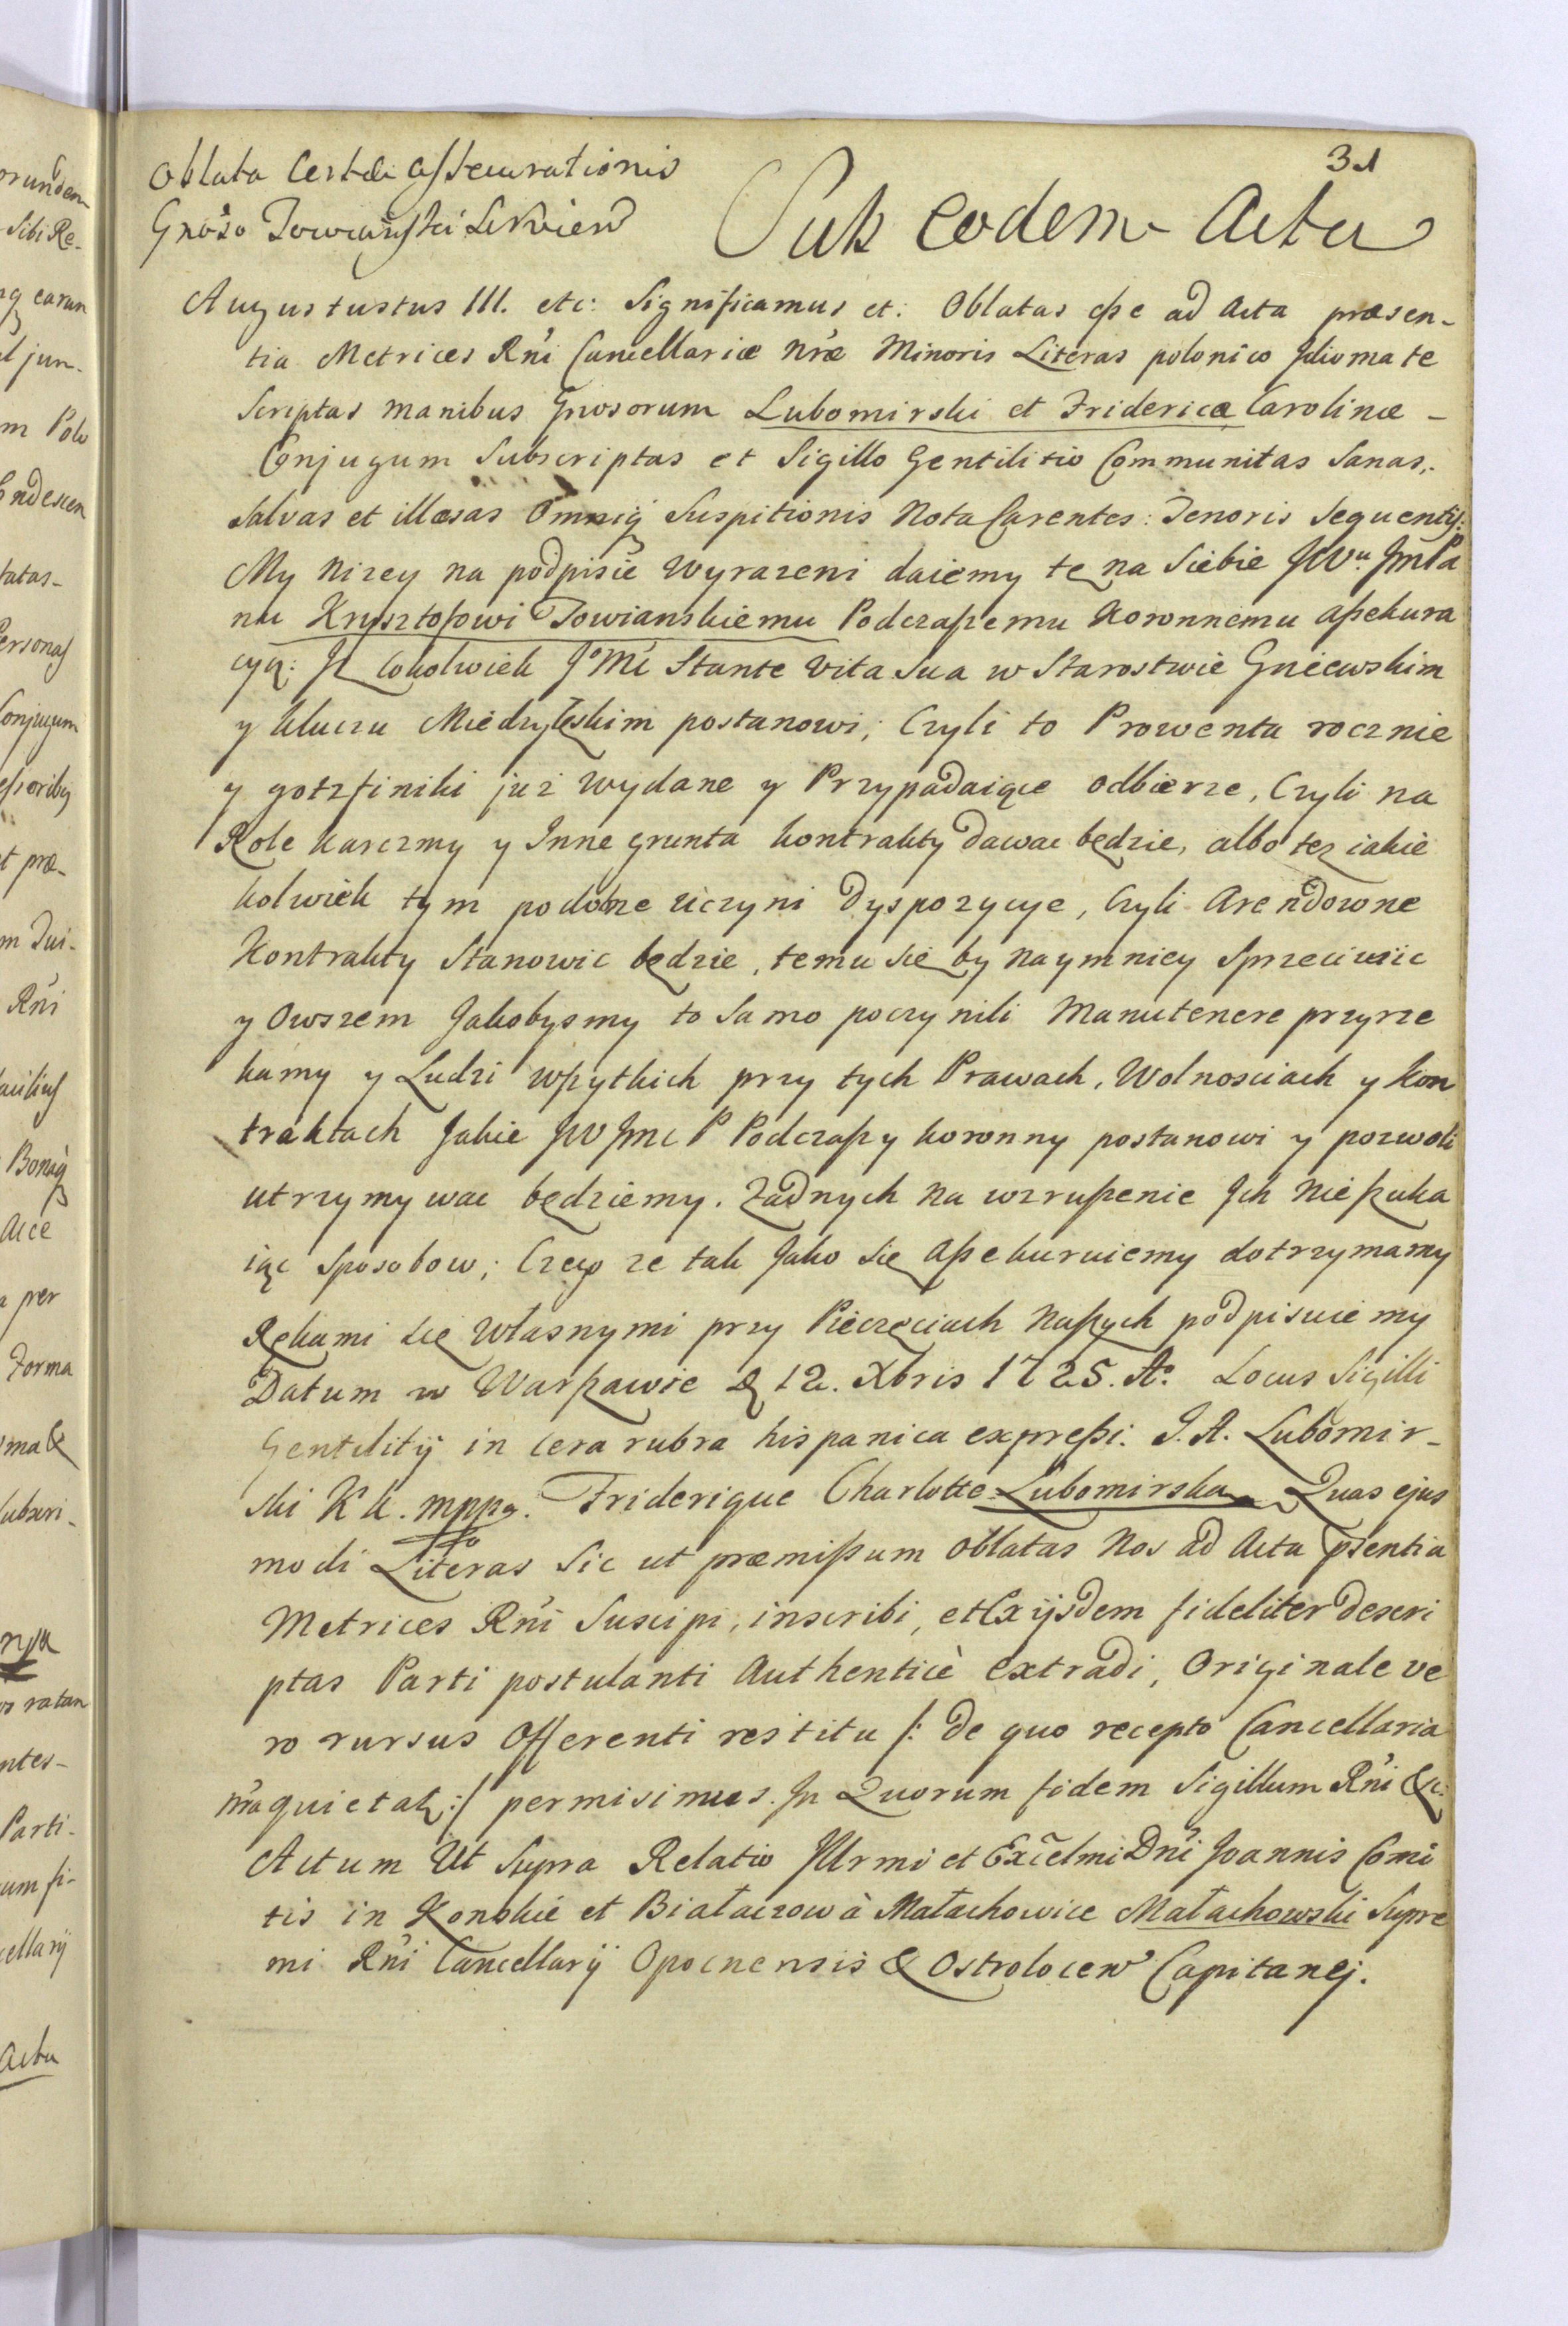 31
Oblata Certæ assecurationis
Gnoso Towiański
Sub eodem Actu
Augustustus III. etc: Significamus et: Oblatas eße ad Acta præsen-
tia Metrices Rn̄i Cancellariæ Nr̄æ Minoris Literas polonico Jdiomate
Scriptas manibus Gnosorum Lubomirski et Fridericæ Carolinæ -
Conjugum Subscriptas et Sigillo Gentilitio Communitas Sanas,
Salvas et illæsas Omniq Suspitionis Nota Carentes: Tenoris Sequentis:
My Nizey na podpisie wyrazeni daiemy tę na Siebie JWu JmPa
nu Krysztofowi Towianskiemu Podczaßemu Koronnemu aßekura
cyą: Jz Cokolwiek JoMć Stante Vita Sua w Starostwie Gniewskim
y kluczu Miedzyłęskim postanowi, Czyli to Prowenta rocznie
y gotzfiniki juz wydane y Przypadaiące odbierze, Czyli na
Role karczmy y Inne grunta kontrakty dawac będzie, albo tez iakie
kolwiek tym podobne uczyni Dyspozycye, Czyli Arendowne
Kontrakty Stanowic będzie, temu się by naymniey Sprzeciwiic
y Owszem Jakobysmy to Samo poczynili Manutenere przyrze
kamy y Ludzi wßytkich przy tych Prawach, Wolnosciach y kon
traktach Jakie JW Jmc P Podczaßy koronny postanowi y pozwoli
utrzymywac będziemy. Zadnych na wzrußenie Jch nießuka
iąc Sposobow; Czego ze tak Jako się aßekuruiemy dotrzymamy
Rękami się własnymi przy Pieczęciach Naßych podpisuiemy
Datum w Warßawie d 12. Xbris 1725. Ao. Locus Sigilli
Gentilitij in Cera rubra hispanica expreßi. J. A. Lubomir-
ski K k. mppa. Friderique Charlotte Lubomirska Quas ejus
modi Literas Sic ut præmißum oblatas Nos ad Acta psentia
Metrices Rn̄i Suscipi, inscribi, et Ex ijsdem fideliter descri
ptas Parti postulanti Authenticè extradi, Originale ve
ro rursus Offerenti restitu /: de quo recepto Cancellaria
nr̄a quietatʒ :/ permisimus. Jn Quorum fidem Sigillum Rn̄i &c:
Actum Ut Supra Relatio Jllrmi et Excelmi Dn̄i Joannis Comi
tis in Konskie et Białaczow à Małachowice Małachowski Supre
mi Rn̄i Cancellarij Opocnensis & Ostrolocen Capitanej.